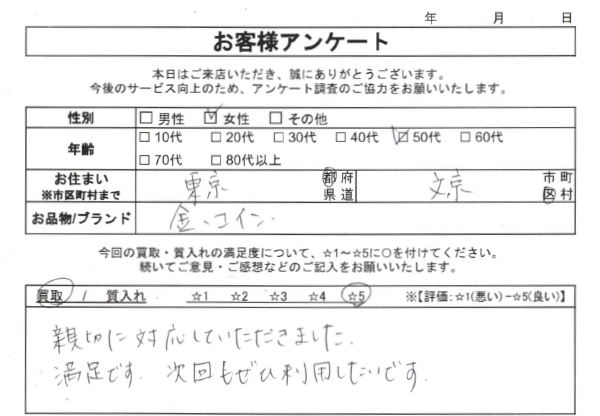 年 月 日
お客様アンケート
本日はご来店いただき、誠にありがとうございます。
今後のサービス向上のため、アンケート調査のご協力をお願いいたします。
性別 □ 男性 ☑ 女性 □ その他
年齢 □ 10代 □ 20代 □ 30代 □ 40代 ☑ 50代 □ 60代
□ 70代 □ 80代以上
お住まい 東京 都府 文京 市町
※市区町村まで 県道 区村
お品物/ブランド 金、コイン
今回の買取・質入れの満足度について、☆1～☆5に○を付けてください。
続いてご意見・ご感想などのご記入をお願いいたします。
買取 / 質入れ ☆1 ☆2 ☆3 ☆4 ☆5 ※【評価:☆1(悪い)-☆5(良い)】
親切に対応していただきました.
満足です. 次回もぜひ利用したいです.